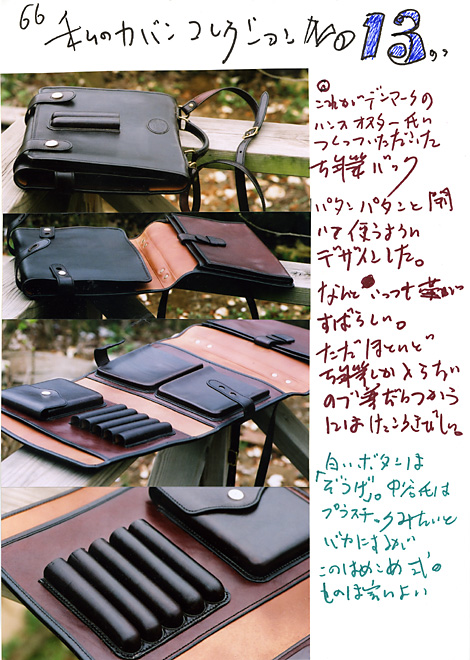 66 私のカバンコレクション No 13 の2
これがデンマークの
ハンス オスター氏に
つくっていただいた
万年筆バック
パタンパタンと開
いて使うように
デザインした。
なんといっても革が
すばらしい。
ただほとんど
万年筆しか入らない
ので普だんつかう
にはけっこうきびしい。
白いボタンは
ぞうげ。中谷氏は
プラスチックみたいと
バカにするが
このはめこめ式の
ものは